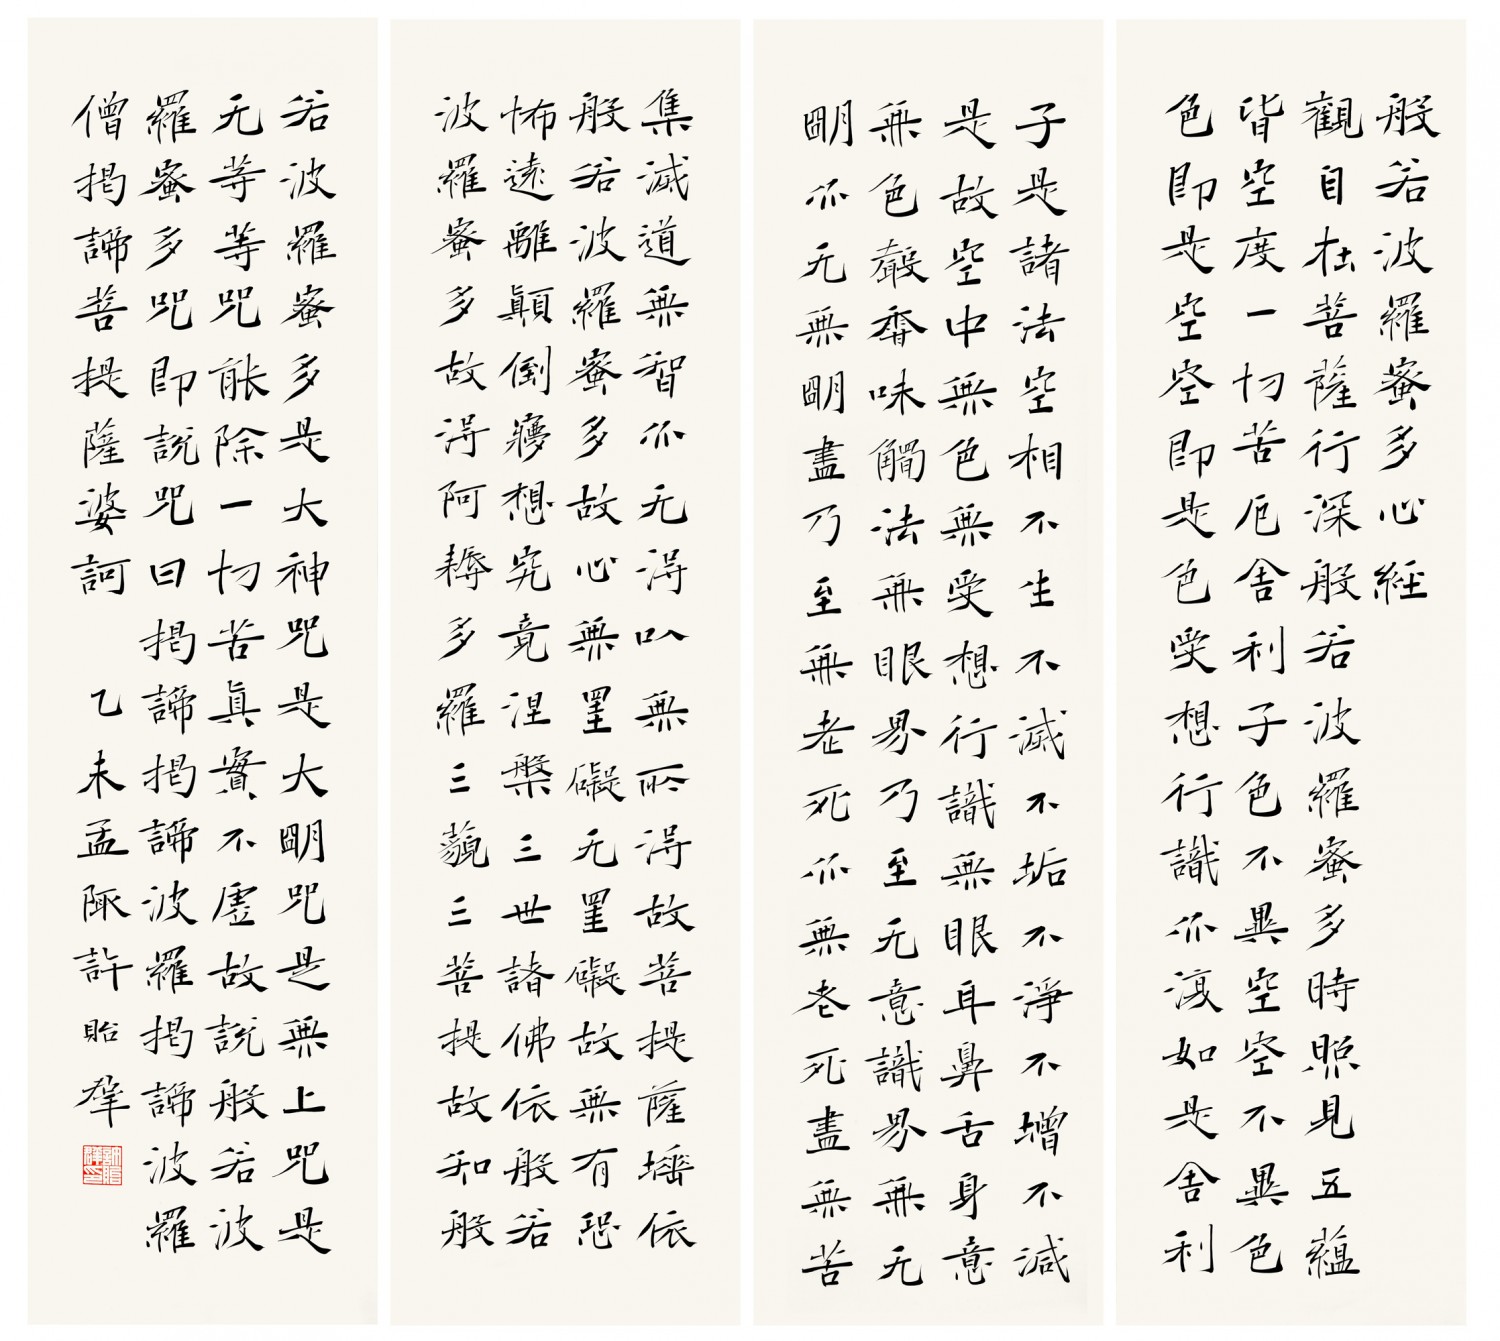 般若波羅蜜多心經
觀自在菩薩行深般若波羅蜜多時照見五蘊
皆空度一切苦厄舍利子色不異空空不異色
色即是空空即是色受想行識亦復如是舍利
子是諸法空相不生不滅不垢不淨不增不減
是故空中無色無受想行識無眼耳鼻舌身意
無色聲香味觸法無眼界乃至无意識界無无
明亦无無明盡乃至無老死亦無老死盡無苦
集滅道無智亦无得以無所得故菩提薩埵依
般若波羅蜜多故心無罣礙无罣礙故無有恐
怖遠離顛倒夢想究竟涅槃三世諸佛依般若
波羅蜜多故得阿耨多羅三藐三菩提故知般
若波羅蜜多是大神咒是大明咒是無上咒是
无等等咒能除一切苦真實不虛故說般若波
羅蜜多咒即說咒曰揭諦揭諦波羅揭諦波羅
僧揭諦菩提薩婆訶 乙未孟陬許貽